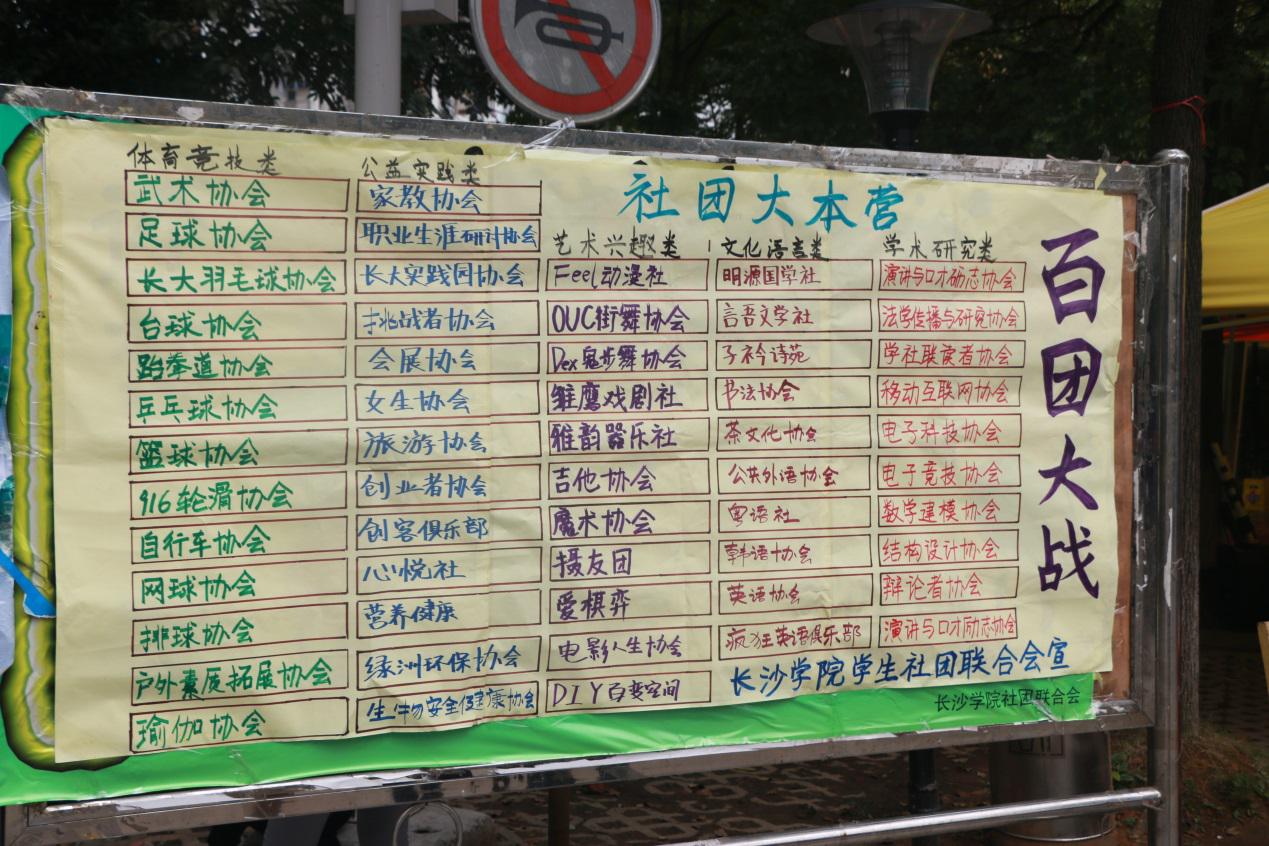 社团大本营
百团大战
体育竞技类
武术协会
足球协会
长大羽毛球协会
台球协会
跆拳道协会
乒乓球协会
篮球协会
916轮滑协会
自行车协会
网球协会
排球协会
户外素质拓展协会
瑜伽协会
公益实践类
家教协会
职业生涯研讨协会
长大实践园协会
挑战者协会
会展协会
女生协会
旅游协会
创业者协会
创客俱乐部
心悦社
营养健康
绿洲环保协会
生物安全健康协会
艺术兴趣类
Feel动漫社
OUC街舞协会
Dex鬼步舞协会
雏鹰戏剧社
雅韵器乐社
吉他协会
魔术协会
摄友团
爱棋弈
电影人生协会
DIY百变空间
文化语言类
明源国学社
言吾文学社
子衿诗苑
书法协会
茶文化协会
公共外语协会
粤语社
韩语协会
英语协会
疯狂英语俱乐部
学术研究类
演讲与口才励志协会
法学传播与研究协会
学社联读者协会
移动互联网协会
电子科技协会
电子竞技协会
数学建模协会
结构设计协会
辩论者协会
演讲与口才励志协会
长沙学院学生社团联合会宣
长沙学院社团联合会